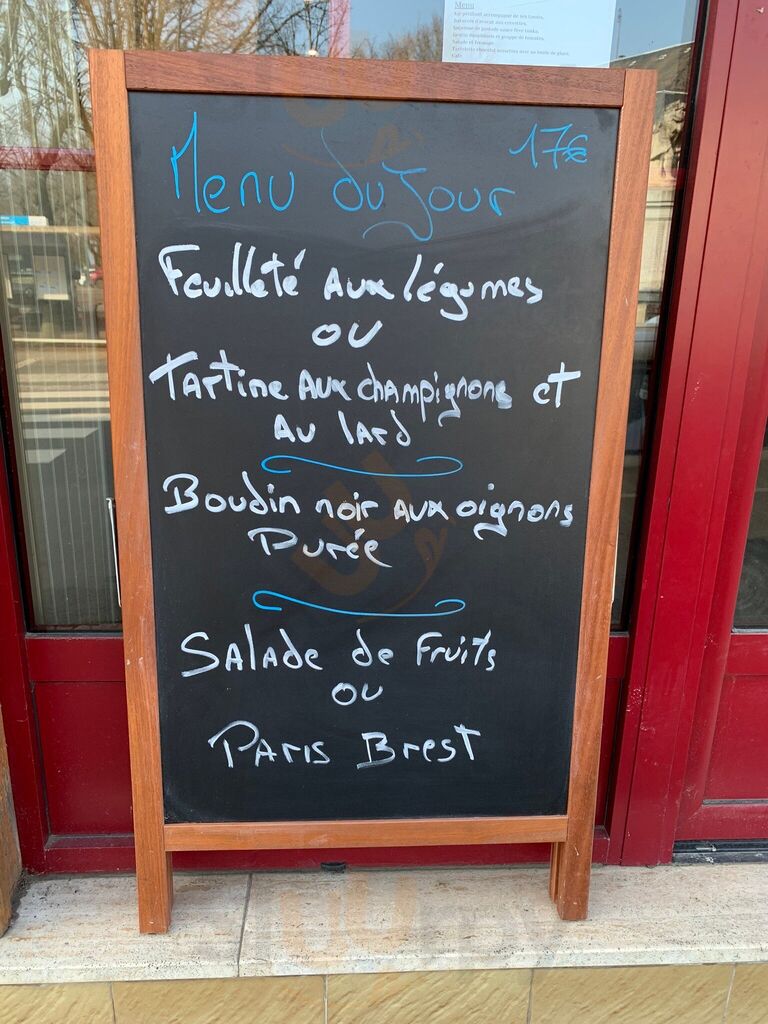 Menu
Menu du Jour 17€
Feuilleté Aux légumes
ou
Tartine Aux champignons et
Au lard
Boudin noir Aux oignons
Purée
Salade de Fruits
ou
Paris Brest